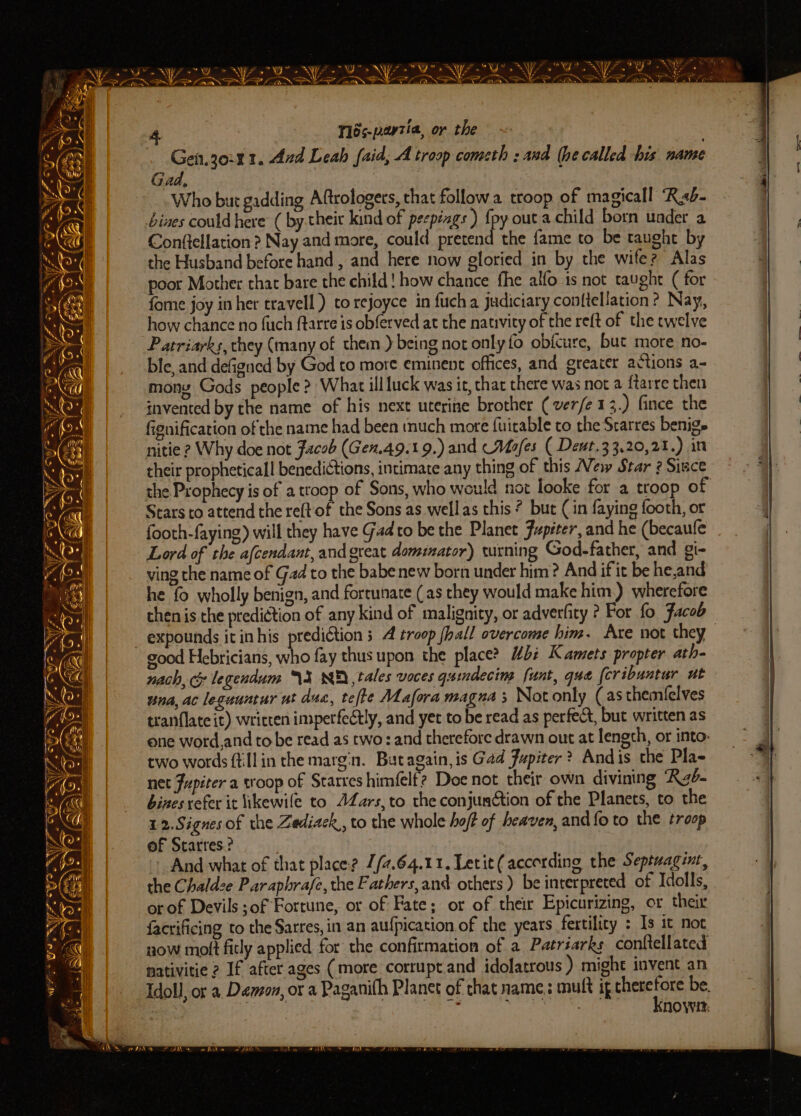 4 Πῦς-μαντία, or the
Gen.30-11. And Leah ſaid, A troop cometh : and ſhe called his name
Gad,
Who but gadding Aſtrologers, that follow a troop of magicall Rab-
bines could here ( by their kind of peepings ) ſpy out a child born under a
Conſtellation ? Nay and more, could pretend the ſame to be taught by
the Husband before hand , and here now gloried in by the wife ? Alas
poor Mother that bare the child ! how chance ſhe alſo is not taught ( for
ſome joy in her travell ) to rejoyce in ſuch a judiciary conſtellation ? Nay,
how chance no ſuch ſtarre is obſerved at the nativity of the reſt of the twelve
Patriarks, they (many of them ) being not only ſo obſcure, but more no-
ble, and deſigned by God to more eminent offices, and greater actions a-
mong Gods people ? What ill luck was it, that there was not a ſtarre then
invented by the name of his next uterine brother ( verſe 13.) ſince the
ſignification of the name had been much more ſuitable to the Starres benig-
nitie ? Why doe not Jacob (Gen.49.19.) and Moſes ( Deut.33.20,21.) in
their propheticall benedictions, intimate any thing of this New Star ? Since
the Prophecy is of a troop of Sons, who would not looke for a troop of
Stars to attend the reſt of the Sons as well as this ? but ( in ſaying ſooth, or
ſooth-ſaying) will they have Gad to be the Planet Jupiter, and he (becauſe
Lord of the aſcendant, and great dominator) turning God-father, and gi-
ving the name of Gad to the babe new born under him ? And if it be he,and
he ſo wholly benign, and fortunate ( as they would make him ) wherefore
then is the prediction of any kind of malignity, or adverſity ? For ſo Jacob
expounds it in his prediction ; A troop ſhall overcome him. Are not they
good Hebricians, who ſay thus upon the place? Ubi Kamets propter ath-
nach, & legendum בא גד ,tales voces quindecim ſunt, quæ ſcribuntur ut
una, ac leguuntur ut duæ, teſte Maſora magna ; Not only ( as themſelves
tranſlate it) written imperfectly, and yet to be read as perfect, but written as
one word,and to be read as two : and therefore drawn out at length, or into
two words ſtill in the margin. But again, is Gad Jupiter ? And is the Pla-
net Jupiter a troop of Starres himſelf ? Doe not their own divining Rab-
bines refer it likewiſe to Mars, to the conjunction of the Planets, to the
12.Signes of the Zodiack, to the whole hoſt of heaven, and ſo to the troop
of Starres ?
And what of that place ? Iſa.64.11. Let it ( according the Septuagint,
the Chaldee Paraphraſe, the Fathers, and others ) be interpreted of Idolls,
or of Devils ; of Fortune, or of Fate ; or of their Epicurizing, or their
ſacrificing to the Sarres, in an auſpication of the years fertility : Is it not
now moſt fitly applied for the confirmation of a Patriarks conſtellated
nativitie ? If after ages ( more corrupt and idolatrous ) might invent an
Idoll, or a Demon, or a Paganiſh Planet of that name : muſt it therefore be
known